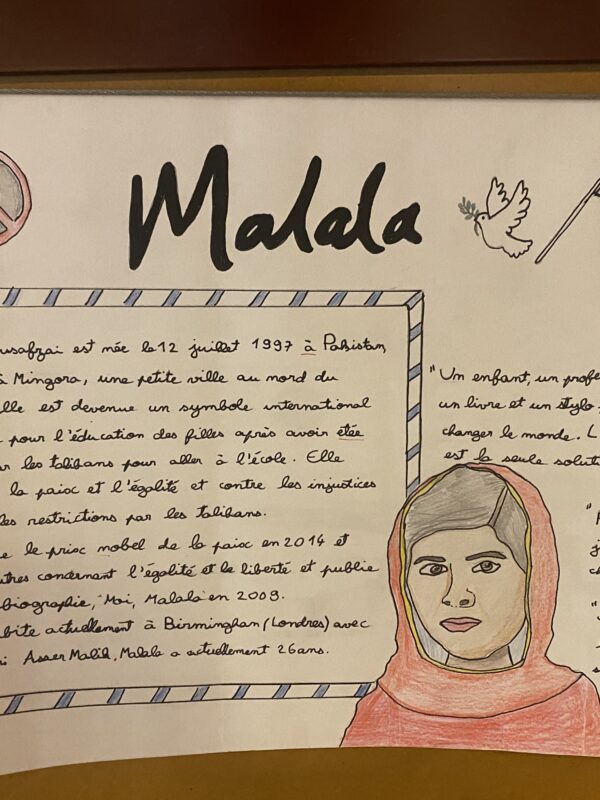 Malala
usafzai est née le 12 juillet 1997 à Pakistan,
à Mingora, une petite ville au nord du
lle est devenue un symbole international
pour l'éducation des filles après avoir étée
les talibans pour aller à l'école. Elle
la paix et l'égalité et contre les injustices
les restrictions par les talibans.
le prix nobel de la paix en 2014 et
tres concernant l'égalité et le liberté et publie
biographie, "Moi, Malala en 2009.
bite actuellement à Birminghan (Londres) avec
ri Asser Malik. Malala a actuellement 26ans.
"Un enfant, un profe
un livre et un stylo
changer le monde. L
est la seule soluti